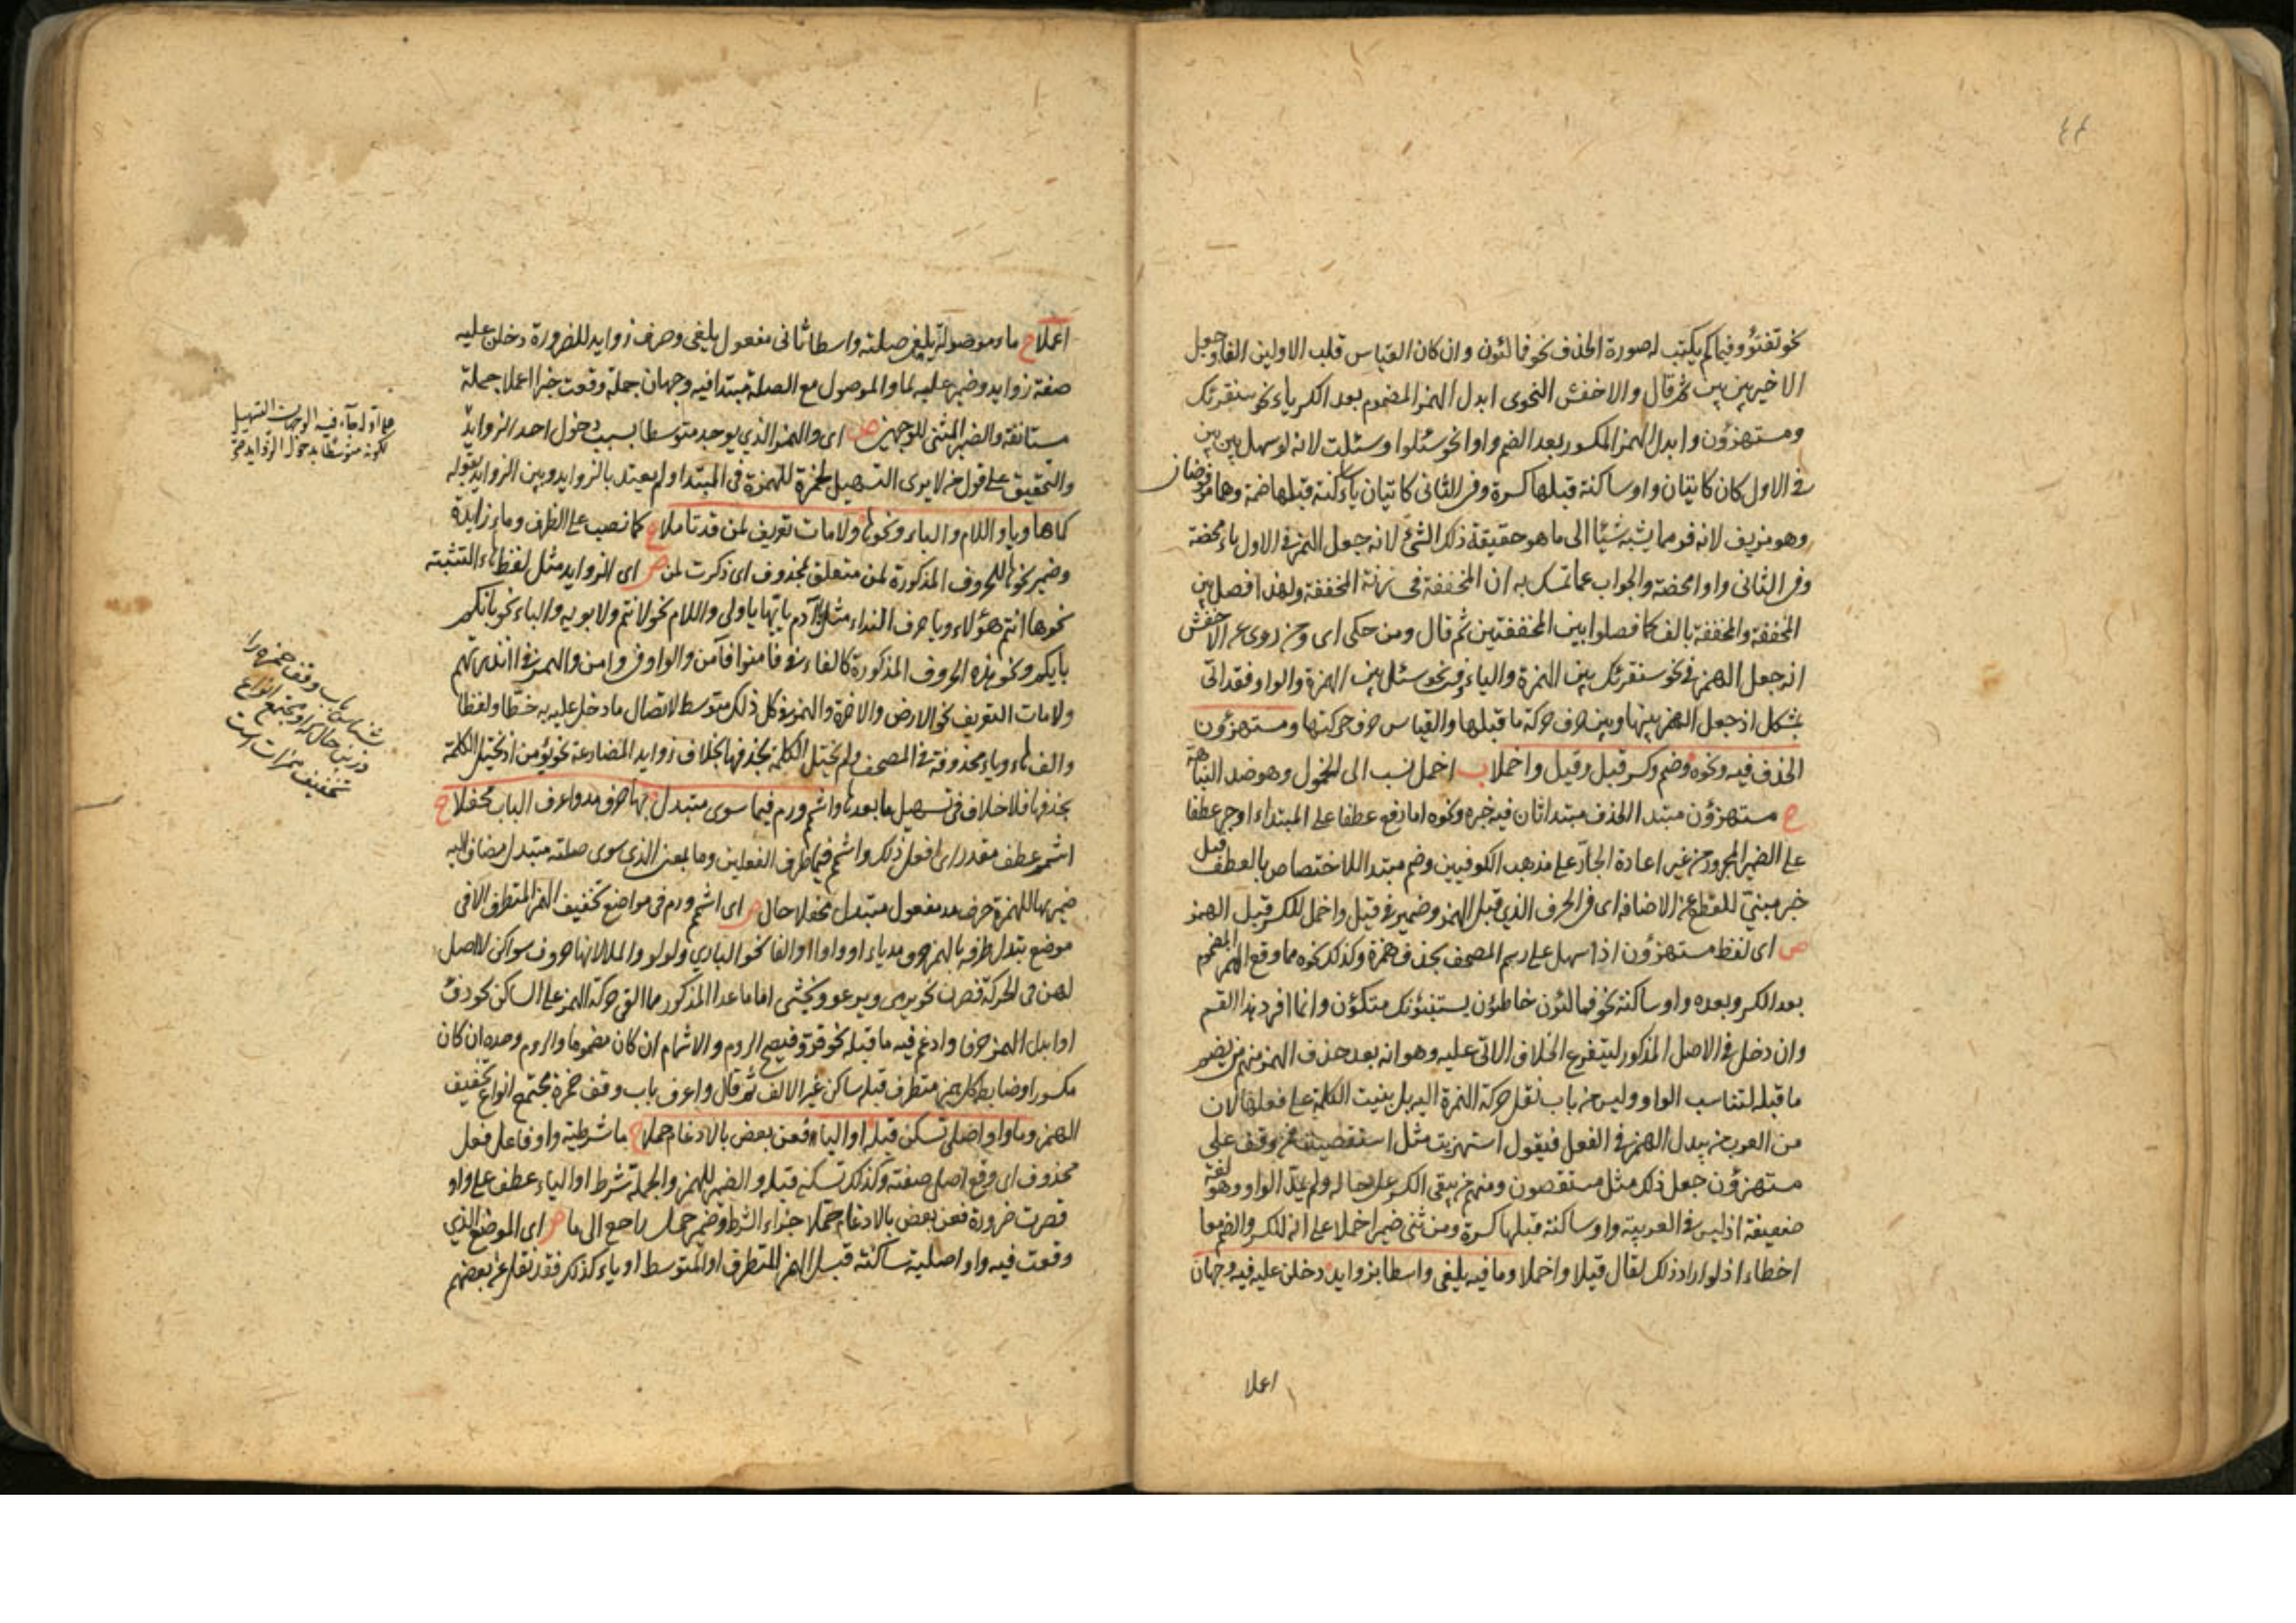 نحو تفتؤ وفيما لم يكتب له صورة الحذف نحو فمالئون وان كان القياس قلب الاولين الفا وجعل
الاخيرين بين بين ثم قال والاخفش النحوى ابدل الهمز المضموم بعد الكسر ياء نحو سنقرئك
ومستهزؤن وابدل الهمز المكسور بعد الضم واوا نحو سئلوا وسئلت لانه لو سهل بين بين
فى الاول كان كاتيان واو ساكنة قبلها كسرة وفى الثانى كاتيان ياء ساكنة قبلها ضمة وهما مرفوضان
وهو مزيف لانه فر مما يشبه شيئا الى ما هو حقيقة ذلك الشئ لانه جعل الهمز فى الاول ياء محضة
وفى الثانى واوا محضة والجواب عما تمسك به ان المخففة فى زنة المحققة ولهذا فصل بين
المحققة والمخففة بالف كما فصلوا بين المحققتين ثم قال ومن حكى اى ومن روى عن الاخفش
انه جعل الهمز فى نحو سنقرئك بين الهمزة والياء وفى نحو سئل بين الهمزة والواو فقد اتى
بمشكل اذ جعل الهمز بينها وبين حرف حركة ما قبلها والقياس حرف حركتها ومستهزؤن
الحذف فيه ونحوه وضم وكسر قبل قيل واخملا ب اخمل نسب الى الخمول وهو ضد النباهة
ح مستهزؤن مبتدا الحذف مبتدا ثان فيه خبره ونحوه اما رفع عطفا على المبتداء او جر عطفا
على الضمير المجرور من غير اعادة الجار على مذهب الكوفيين وضم مبتدا للاختصاص بالعطف قبل
خبر مبنى للقطع عن الاضافة اى فى الحرف الذي قبل الهمز وضمير فى قيل واخمل للكسر قبل الهمز
ص اى لفظ مستهزؤن اذا سهل على رسم المصحف بحذف همزة وكذلك نحوه مما وقع الهمز المضموم
بعد الكسر وبعده واو ساكنة نحو فمالئون خاطئون يستنبئونك متكؤن وانما افرد هذا القسم
وان دخل فى الاصل المذكور ليتفرع الخلاف الاتى عليه وهو انه بعد حذف الهمز منهم من يضم
ما قبله لتناسب الواو وليس من باب نقل حركة الهمزة اليه بل بنيت الكلمة على فعلها لان
من العرب من يبدل الهمز فى الفعل فيقول استهزيت مثل استقصيت فمن وقف على
مستهزؤن جعل ذلك مثل مستقصون ومنهم من يبقى الكسر على حاله ولم يمد الواو وهو لغة
ضعيفة اذ ليس فى العربية واو ساكنة قبلها كسرة ومن ثنى ضمير اخملا على انه للكسر والضم معا
اخطاء اذ لو اراد ذلك لقال قيلا واخملا وما فيه يلفى واسطا بزوايد دخلن عليه فيه وجهان
اعملا
اعملا ح ما موصولة يلفى صلته واسطا ثانى مفعول يلفى وصرف زوايد للضرورة دخلن عليه
صفة زوايد وضمير عليه لما والموصول مع الصلة مبتدا فيه وجهان جملة وقعت خبرا اعملا جملة
مستانفة والضمير المثنى للوجهين ص اى والهمز الذي يوجد متوسطا بسبب دخول احد الزوايد
والتحقيق على قول من لا يرى التسهيل لحمزة للهمزة فى المبتدا ولم يعتد بالزوايد وبين الزوايد بقوله
كما ها ويا واللام والباء ونحوها ولامات تعريف لمن قد تاملا ح كما نصب على الظرف وما زايدة
وضمير نحوها للحروف المذكورة لمن متعلق بمحذوف اى ذكرت لمن ص اى الزوايد مثل لفظ هاء التنبيه
نحو ها انتم هؤلاء ويا حرف النداء مثل يا آدم يا ايها يا اولى واللام نحو لانتم ولابويه والباء نحو بانكم
بايكم ونحو هذه الحروف المذكورة كالفاء فى فامنوا فآمن والواو فى وامن والهمز فى اانذرتهم
ولامات التعريف نحو الارض والاخرة والهمز فى كل ذلك متوسط لاتصال ما دخل عليه به خطا ولفظا
والف ها وياء محذوفة فى المصحف ولم يختل الكلمة بحذفها بخلاف زوايد المضارعة نحو يؤمن اذ يختل الكلمة
بحذفها فلا خلاف فى تسهيل ما بعدها واشمم ورم فيما سوى متبدل بها حرف مد واعرف الباب محفلا ح
اشمم عطف مقدر اى افعل ذلك واشمم فيما ظرف الفعلين وما بمعنى الذي سوى صلته متبدل مضاف اليه
ضمير بها للهمزة حرف مد مفعول متبدل محفلا حال ص اى اشمم ورم فى مواضع تخفيف الهمز المتطرف الا فى
موضع يتدل طرفه بالهمز حرف مد ياء او واوا او الفا نحو الباري ولولو والملا لانها حروف سواكن لا اصل
لهن فى الحركة فصرن نحو يرمى ويدعو ويخشى اما ما عدا المذكور مما القى حركة الهمز على الساكن نحو دفء
او ابدل الهمز حرفا وادغم فيه ما قبله نحو قروء فيصح الروم والاشمام ان كان مضموما والروم وحده ان كان
مكسورا وضابطه كل همز متطرف قبله ساكن غير الالف ثم قال واعرف باب وقف حمزة مجتمع انواع تخفيف
الهمز وما واو اصلى تسكن قبله او اليا فعن بعض بالادغام حملا ح ما شرطية واو فاعل فعل
محذوف اى وقع اصلى صفته وكذلك تسكن قبله والضمير للهمز والجملة شرط او الياء عطف على واو
قصرت ضرورة فعن بعض بالادغام حملا جزاء الشرط وضمير حمل راجع الى ما ص اى الموضع الذي
وقعت فيه واو اصلية ساكنة قبل الهمز المتطرف او المتوسط او ياء كذلك فقد نقل عن بعضهم
شناس باب وقف حمزه را
در اين حال كه او مجتمع انواع
تخفيف همزات است